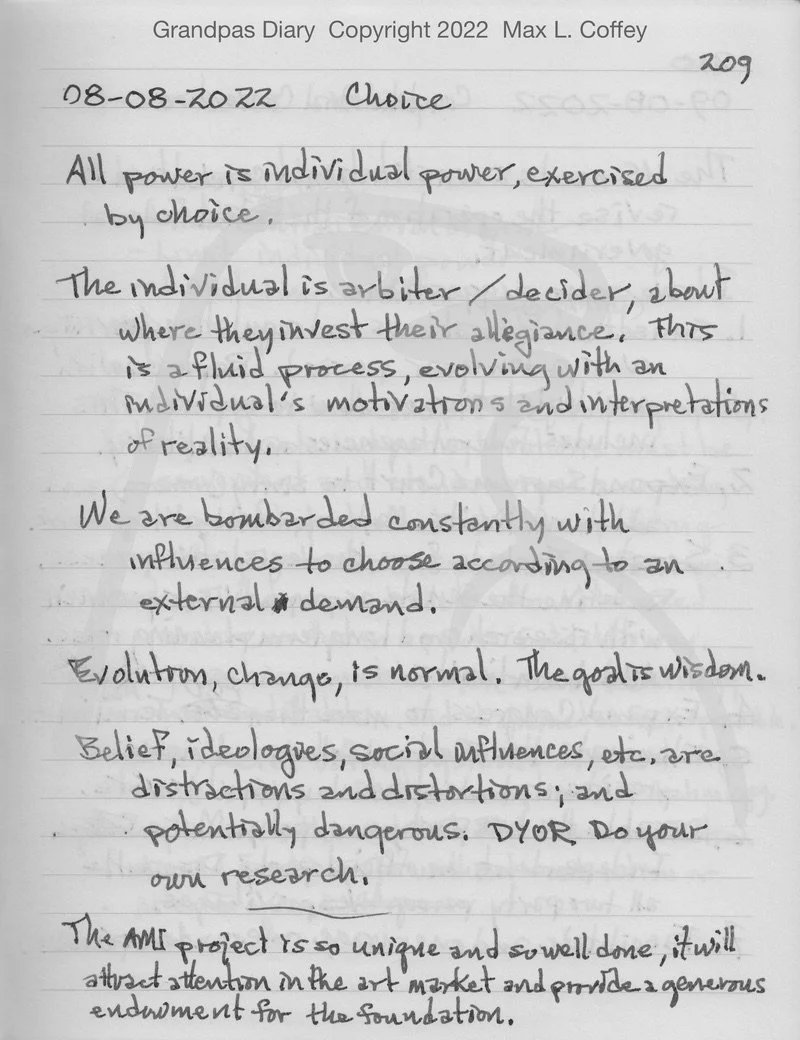 Grandpas Diary Copyright 2022 Max L. Coffey
209
08-08-2022 Choice
All power is individual power, exercised
by choice.
The individual is arbiter/decider, about
where they invest their allegiance. This
is a fluid process, evolving with an
individual's motivations and interpretations
of reality.
We are bombarded constantly with
influences to choose according to an
external demand.
Evolution, change, is normal. The goal is wisdom.
Belief, ideologues, social influences, etc. are
distractions and distortions; and
potentially dangerous. DYOR Do your
own research.
The AMI project is so unique and so well done, it will
attract attention in the art market and provide a generous
endowment for the foundation.